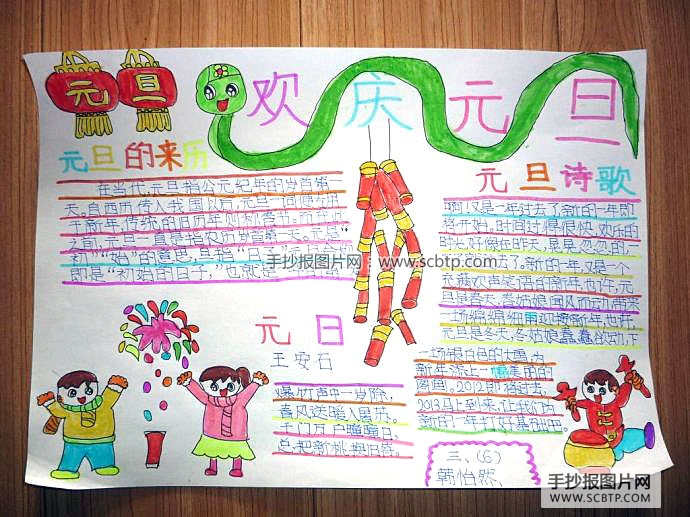 元旦
欢庆元旦
元旦的来历
在当代,元旦指公元纪年的岁首第一
天。自西历传入我国以后,元旦一词便专用
于新年,传统的旧历年则称春节。而在此
之前,元旦一直是指农历岁首第一天。元是“
初”“始”的意思,旦指“日子”
即是“初始的日子”,也就是
手抄报图片网:www.scbtp.com
元旦诗歌
啊!又是一年过去了新的一年即
将开始。时间过得很快,欢乐的
时光好像在昨天,
去了。新的一年又是一个
充满欢声笑语的新年。也许,元
旦是春天,春姑娘闻风而动,
一场绵绵细雨迎接新年。也许,元
旦是冬天,冬姑娘蠢蠢欲动,下
一场银白色的大雪,为
新年添上一幅美丽的
图画。2012即将过去,
2013马上到来,让我们为
新的一年打好基础吧。
元日
王安石
爆竹声中一岁除,
春风送暖入屠苏。
千门万户曈曈日,
总把新桃换旧符。
三、(6)
韩怡然
手抄报图片网
WWW.SCBTP.COM